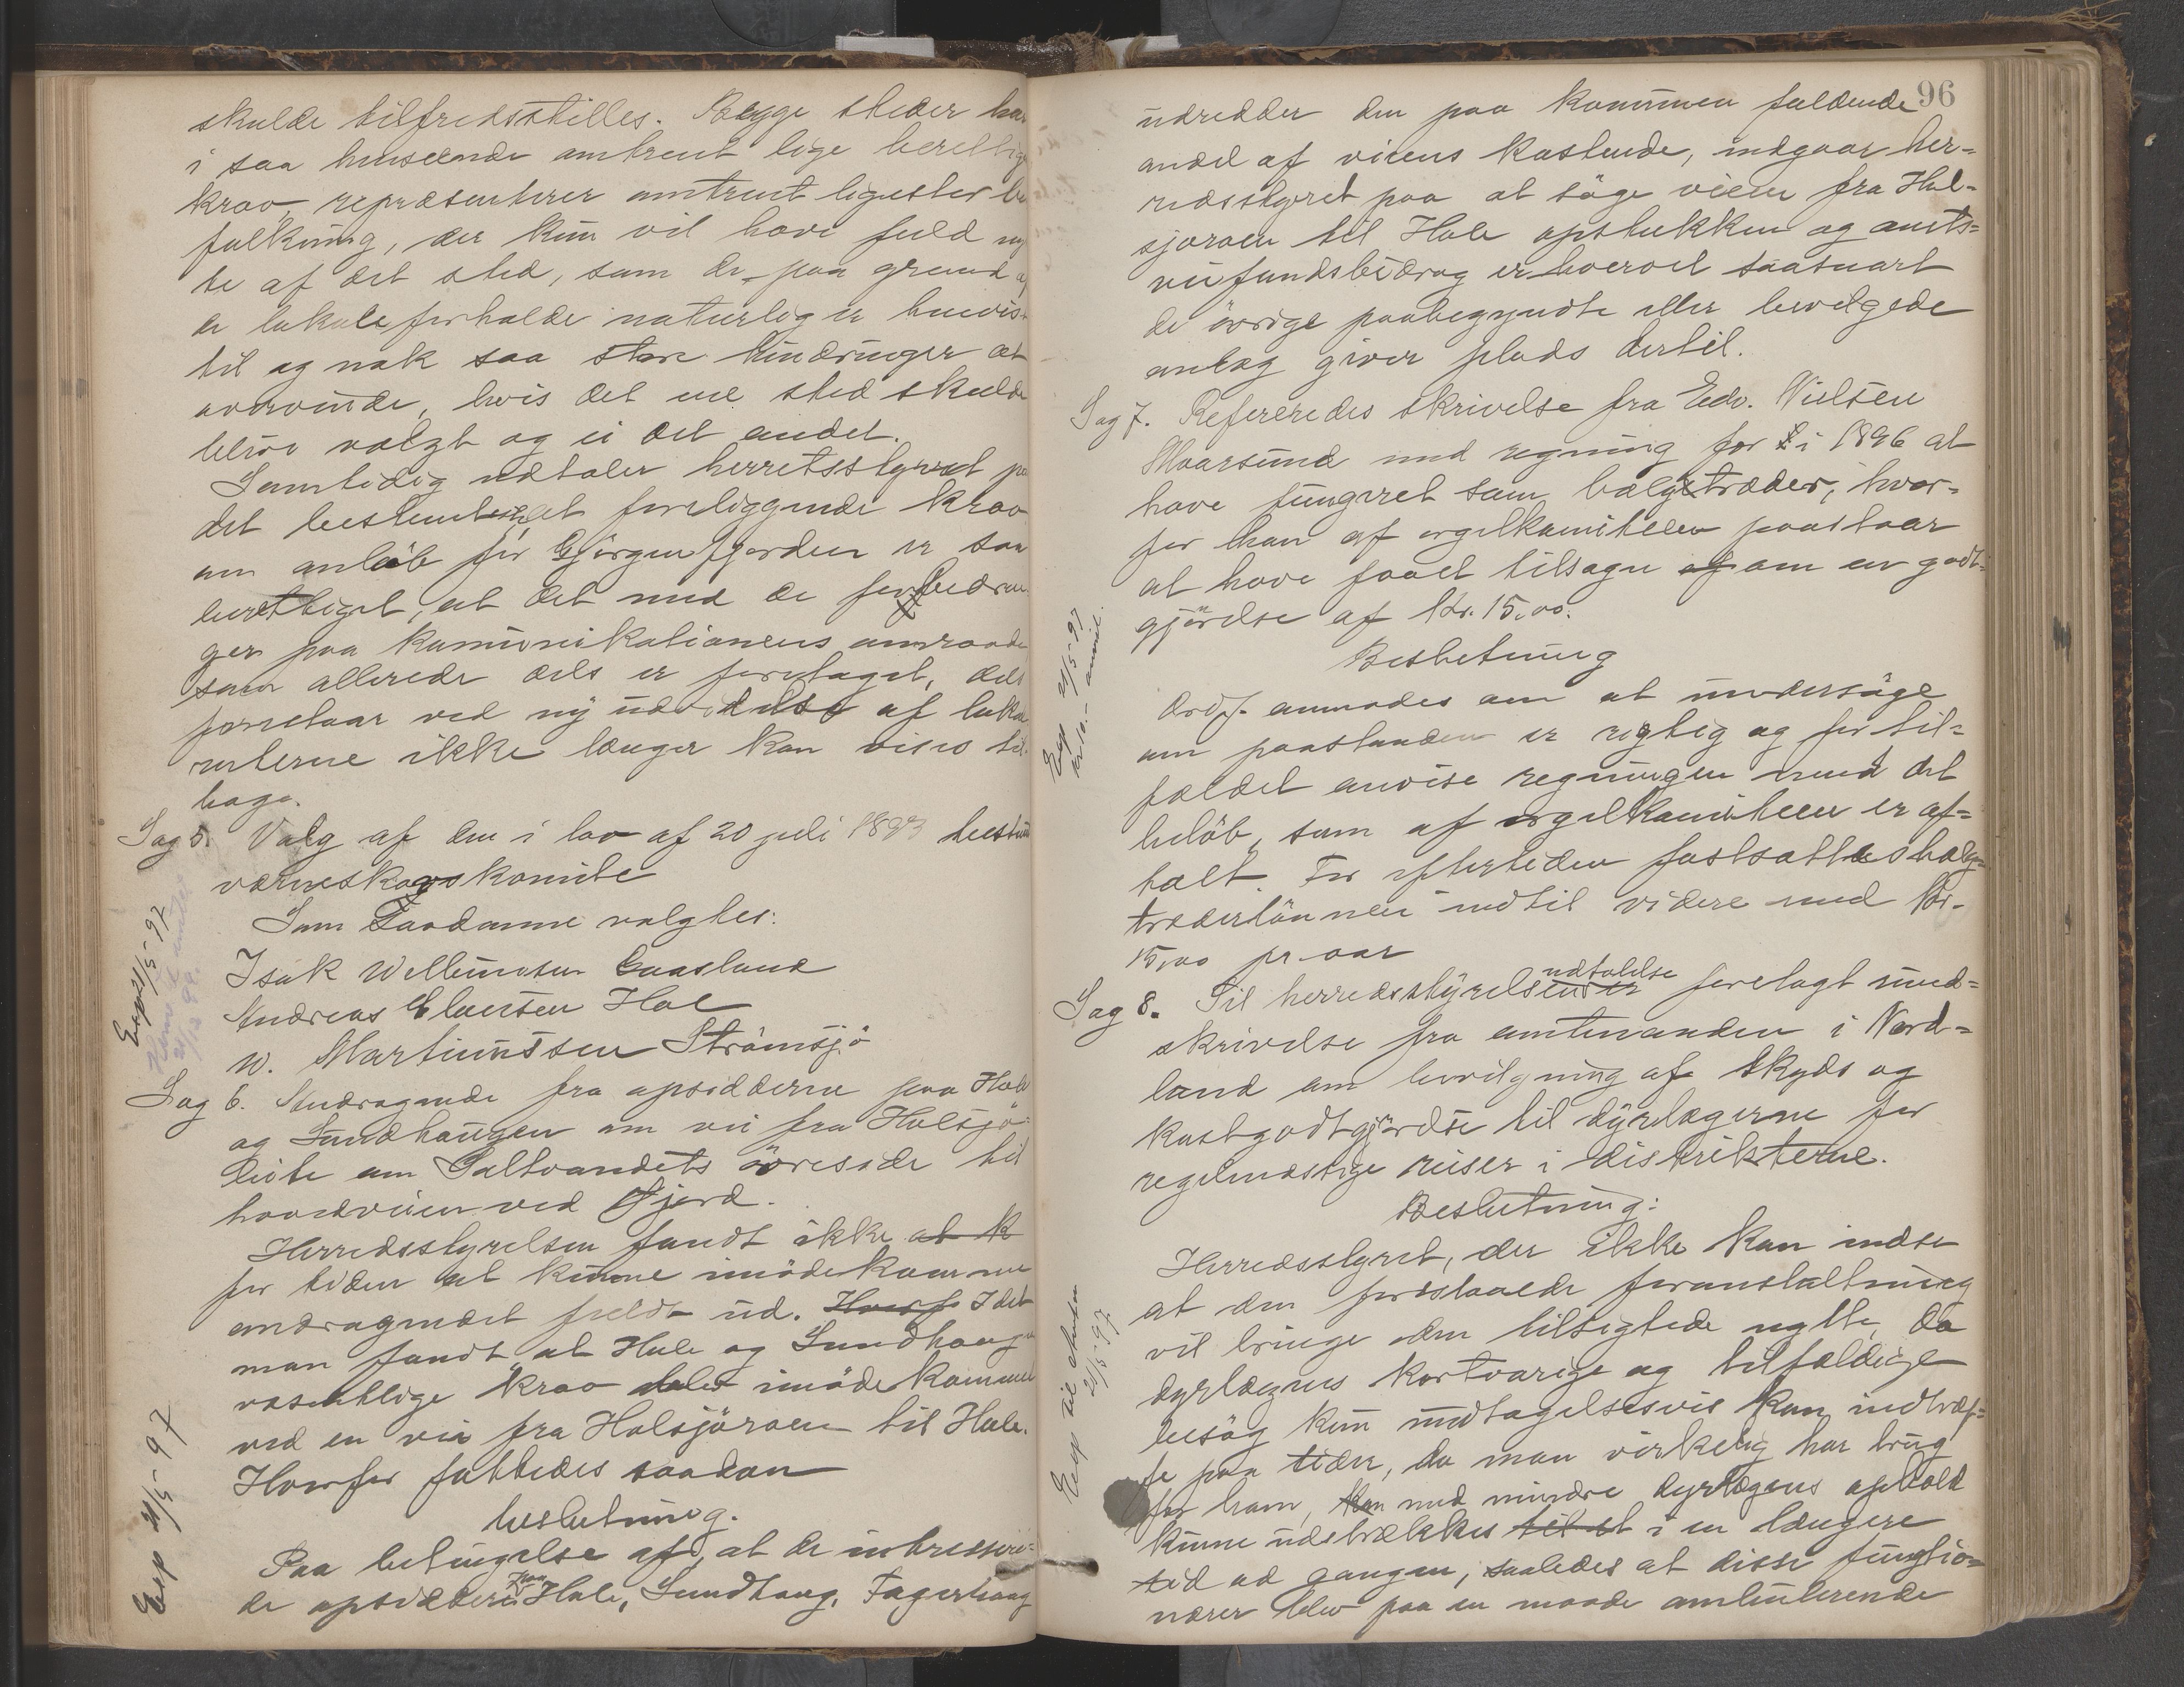 skulde tilfredsstilles. Begge steder har
i saa henseende omtrent lige berettige
krav, repræsenterer omtrent ligestor be
folkning, der kun vil have fuld nyt
te af det sted, som de paa grund af
de lokale forholde naturlig er henvist
til og nok saa store hindringer at
overvinde, hvis det ene sted skulde
blive valgt og ei det andet.
Samtidig udtaler herretsstyret paa
det bestemteste, at foreliggende krav
om anløb for Gjørgenfjorden er saa
berettiget, at det med de forbedrin
ger paa kommunikationens omraade
som allerede dels er foretaget, dels
forestaar ved ny udvidelse af lokal
ruterne ikke længer kan vises til
bage.
Sag 5. Valg af den i lov af 20 juli 1893 bestemte
værneskogskomite
Som saadanne valgtes:
Isak Wellumsen Gaasland
Andreas Elversen Hol
W. Martinussen Strømsjø
Sag 6. Andragende fra opsidderne paa Hole
og Sundhaugen om vei fra Holsjø-
leite om Saltvandets øvreside til
hovedveien ved Fjord.
Herredsstyrelsen fandt ikke at k
for tiden at kunne imødekomme
andragendet fuldt ud. Hvorf Idet
man fandt at Hole og Sundhaugen
væsentlige krav blev imødekommet
ved en vei fra Holsjøroen til Hole.
Hvorfor fattedes saadan
beslutning.
Paa betingelse af, at de intressere-
de opsiddere paa Hole, Sundhaug, Fagerhaug
Exp 21/5-97
Exp 21/5-97
96
udredder den paa kommunen faldende
andel af veiens kostende, indgaar her-
redsstyret paa at søge veien fra Hol-
sjøroen til Hole opstukken og amts-
veifundsbidrag erhvervet saasnart
de øvrige paabegyndte eller bevilgede
anlæg giver plads dertil.
Sag 7. Refereredes skrivelse fra Edv. Nielsen
Maarsund med regning for i 1896 at
have fungeret som bælgetræder, hvor-
for han af orgelkomiteen paastaar
at have faaet tilsagn af om en godt-
gjørelse af Kr. 15,00.
Beslutning
Ordf. anmodes om at undersøge
om paastanden er rigtig og for til-
fældet anvise regningen med det
beløb, som af orgelkomiteen er af-
talt. For eftertiden fastsattes bælg-
træderlønnen indtil videre med Kr.
15,00 pr. aar
Exp 21/5-97
Sag 8. Til herredsstyrelsens udtalelse forelagt rund-
skrivelse fra amtmanden i Nord-
land om bevilgning af skyds og
kostgodtgjørelse til dyrlægerne for
regelmæssige reiser i distrikterne.
Beslutning:
Herredsstyret, der ikke kan indse
at den foreslaaede foranstaltning
vil bringe den tilsigtede nytte, da
dyrlægens kortvarige og tilfældige
besøg kun undtagelsesvis kan indtræf-
fe paa tider, da man virkelig har brug
for ham, kan med mindre dyrlægens ophold
kunne udstrækkes til et i en længere
tid ad gangen, saaledes at disse funktio-
nærer blev paa en maade ambulerende
Exp til Amtm
21/5-97